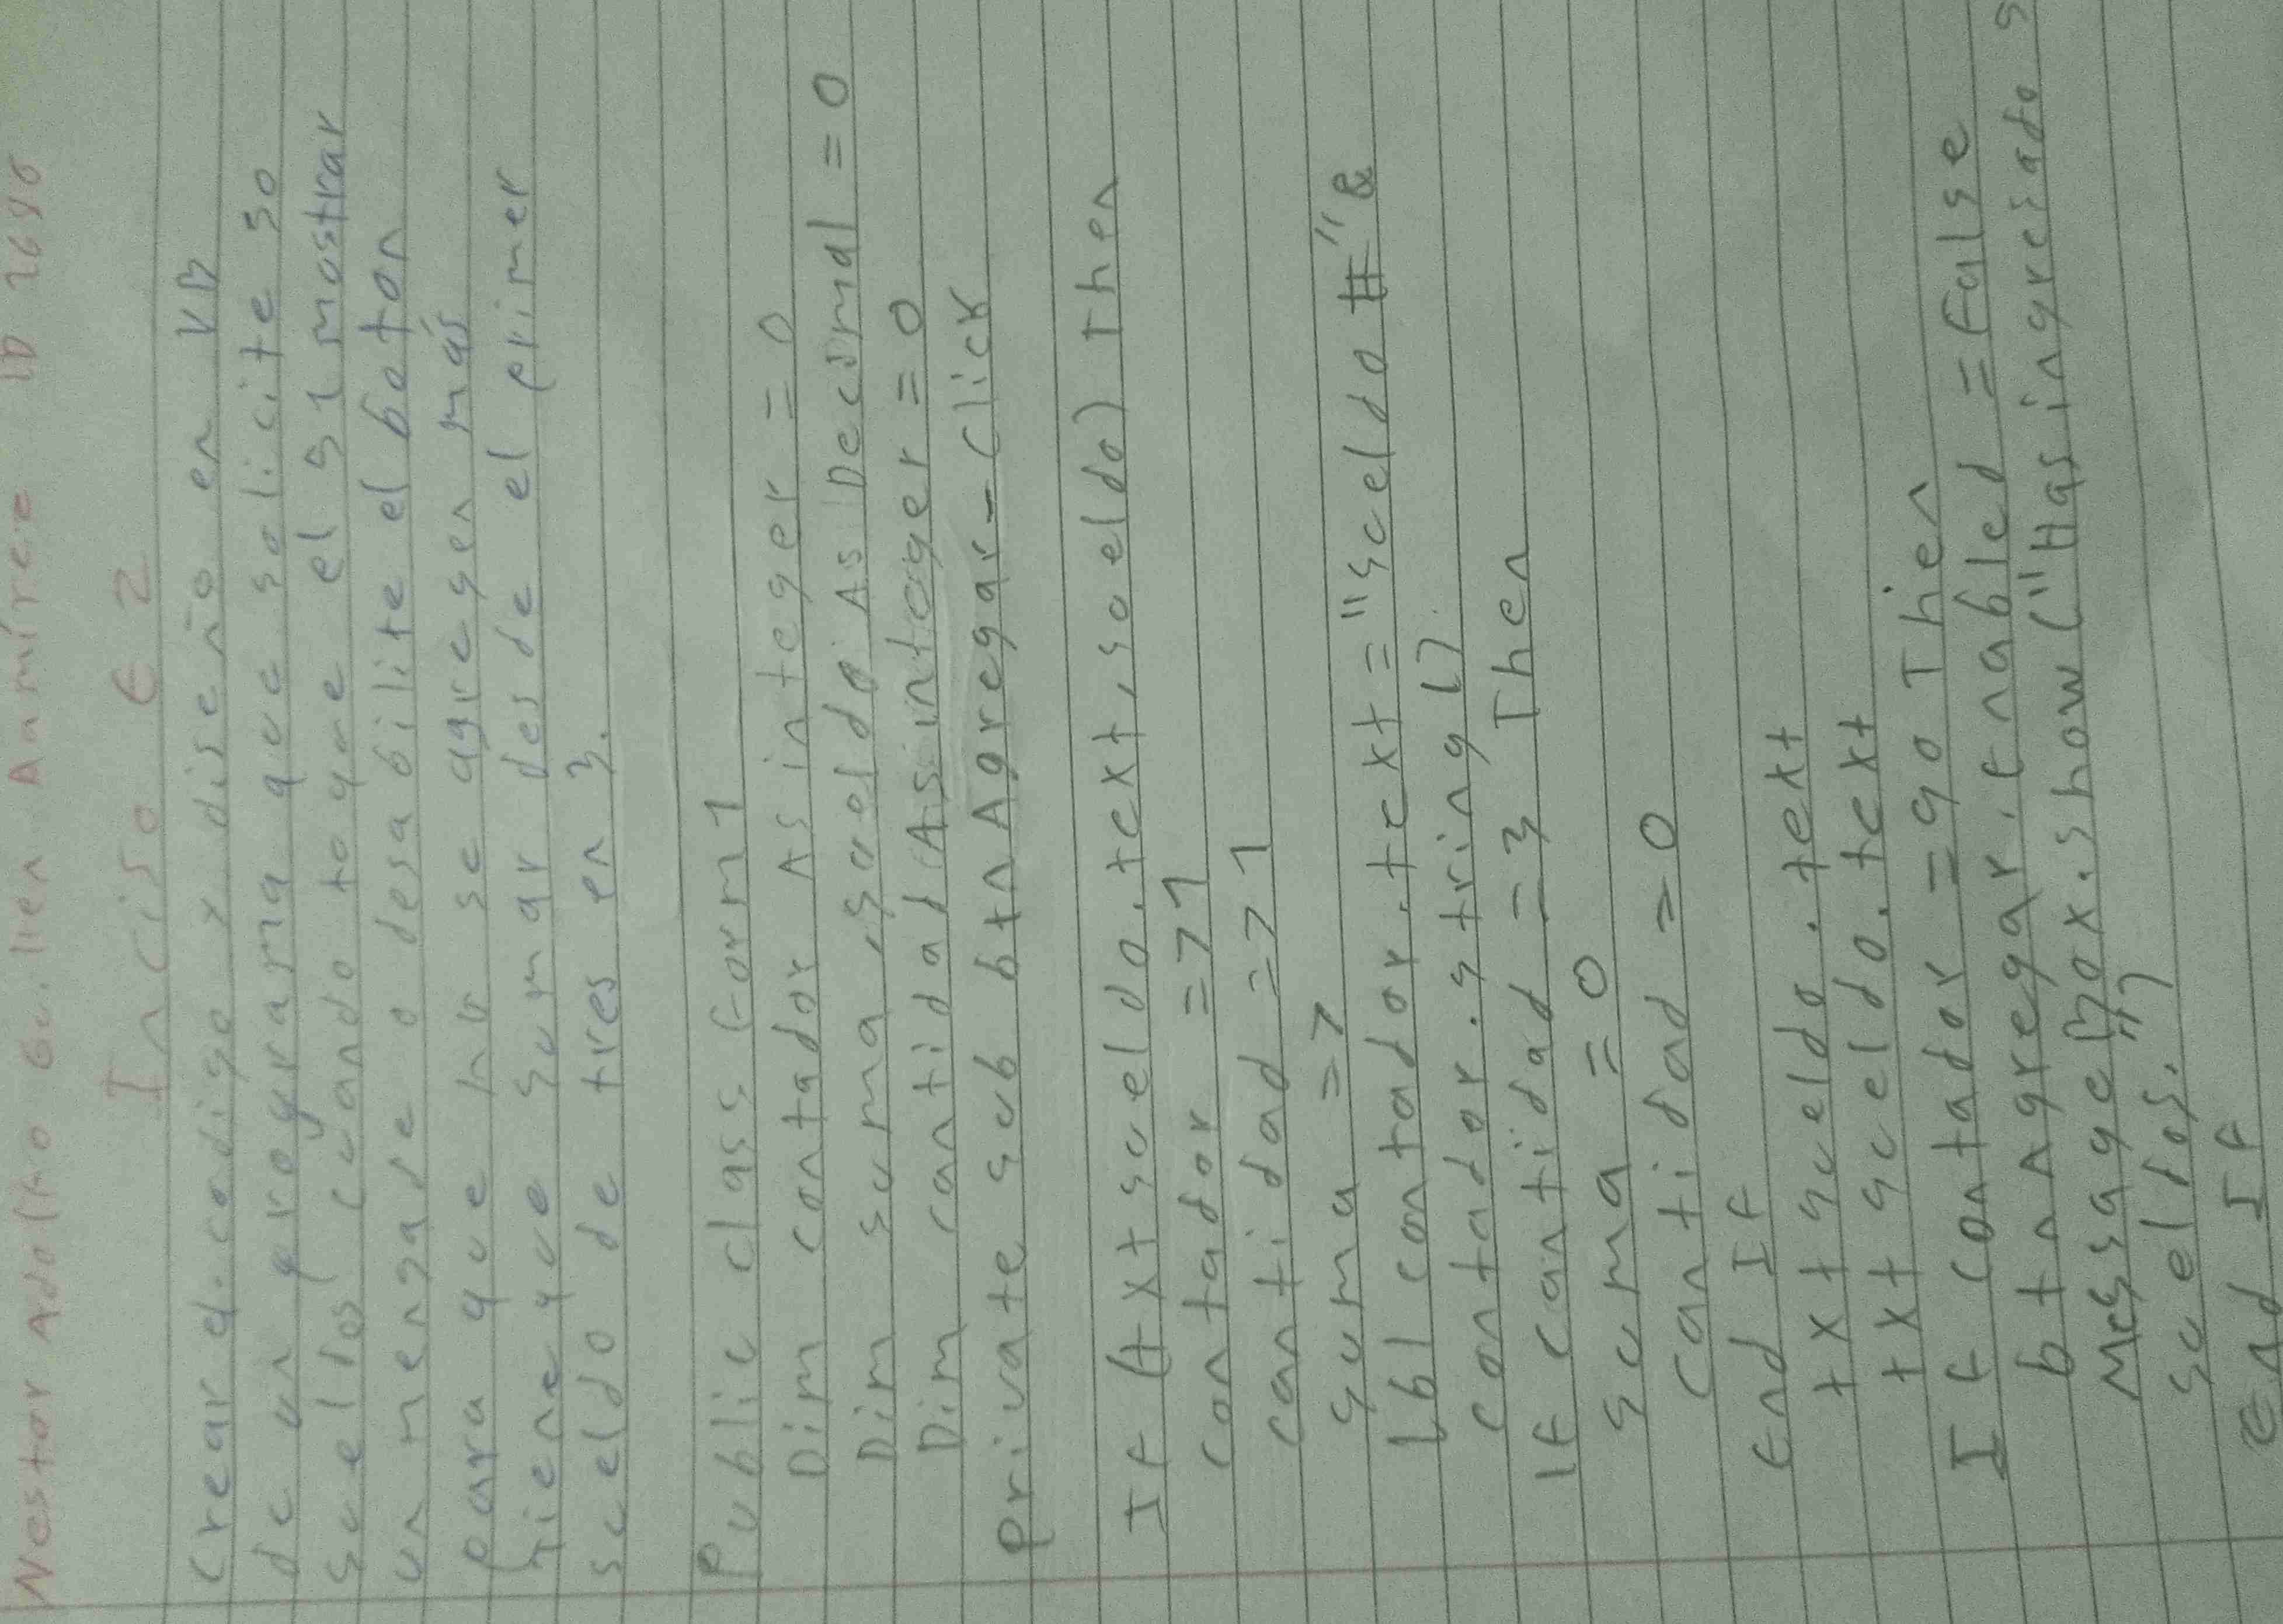 Nestor Adolfo Guillen Ramírez ID 2680
Inciso E 2
crear el codigo y diseño en VB
de un programa que solicite 50
sueldos cuando toque el 51 mostrar
un mensage o desabilite el boton
para que no se agregen más
tiene que sumar desde el primer
sueldo de tres en 3.
Public class Form1
Dim contador As integer = 0
Dim suma, sueldo As Decimal = 0
Dim cantidad As integer = 0
Private sub btnAgregar_Click
If (txtsueldo.text, sueldo) Then
contador => 1
cantidad => 1
suma =>
lbl contador.text = "sueldo #" &
contador.string ()
If cantidad = 3 Then
suma = 0
cantidad = 0
End IF
txtsueldo.text
txtsueldo.text
If contador = 90 Then
btnAgregar.Enabled = False
MessageBox.show ("Has ingresado 5
sueldos.")
End If